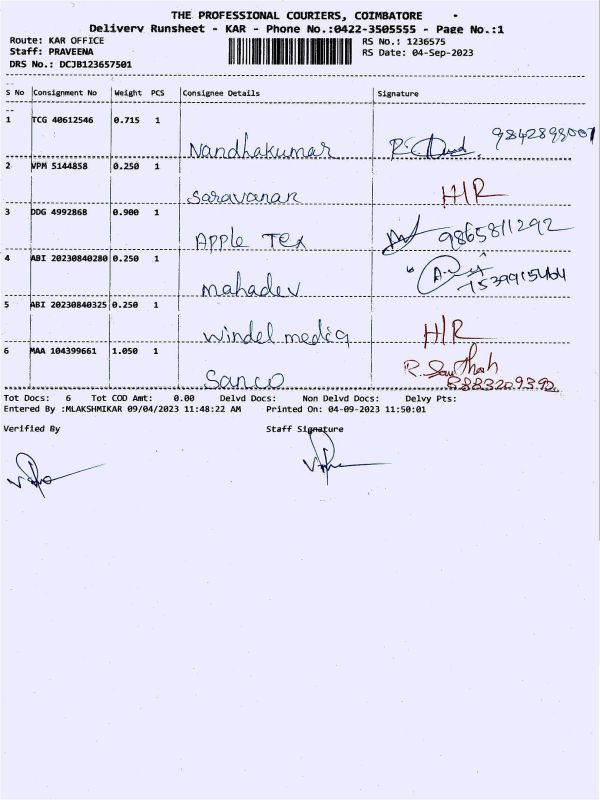 THE PROFESSIONAL COURIERS, COIMBATORE
Delivery Runsheet - KAR - Phone No.:0422-3505555 - Page No.:1
Route: KAR OFFICE
Staff: PRAVEENA
DRS No.: DCJB123657501
RS No.: 1236575
RS Date: 04-Sep-2023
S No Consignment No Weight PCS Consignee Details Signature
1 TCG 40612546 0.715 1
Nandhakumar
2 VPM 5144858 0.250 1
Saravanan H/R
3 DDG 4992868 0.900 1
Apple Tex 9865811292
4 ABI 20230840280 0.250 1
mahadev
5 ABI 20230840325 0.250 1
windel media H/R
6 MAA 104399661 1.050 1
Sanco 8883209392
Tot Docs: 6 Tot COD Amt: 0.00 Delvd Docs: Non Delvd Docs: Delvy Pts:
Entered By :MLAKSHMIKAR 09/04/2023 11:48:22 AM Printed On: 04-09-2023 11:50:01
Verified By Staff Signature